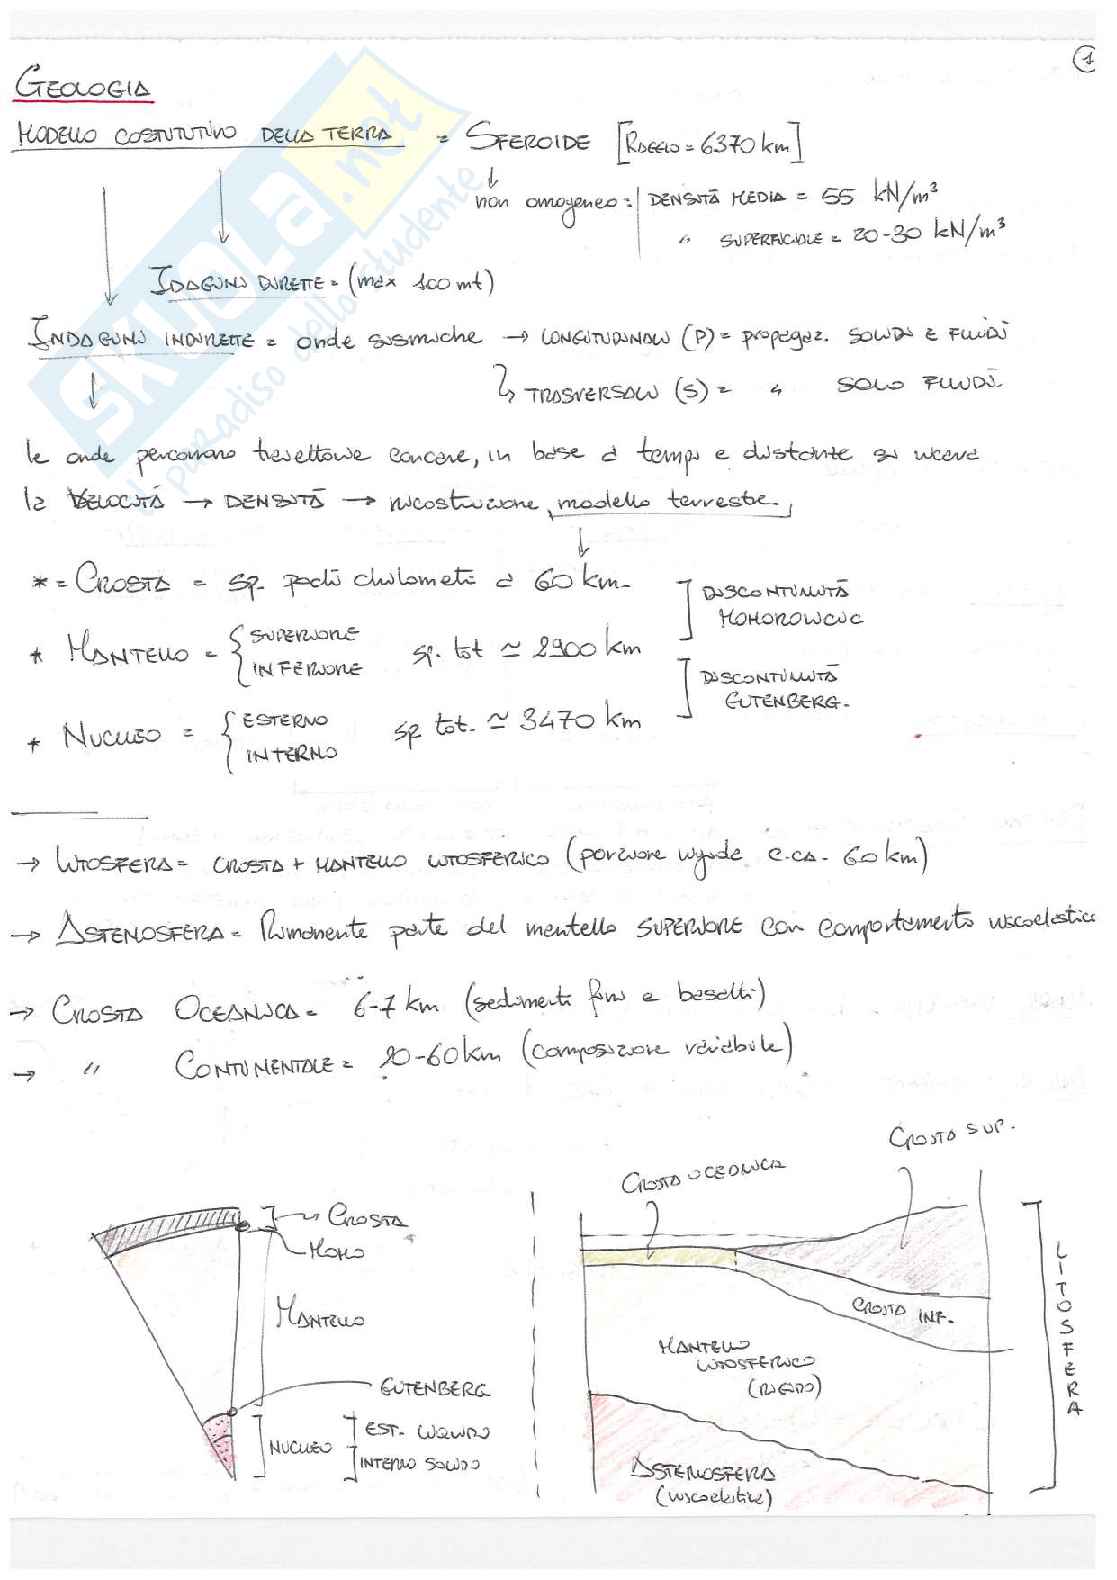 1
GEOLOGIA
MODELLO COSTITUTIVO DELLA TERRA = SFEROIDE [RAGGIO = 6370 km]
non omogeneo: DENSITÀ MEDIA = 55 kN/m³
" SUPERFICIALE = 20-30 kN/m³
IDAGINI DIRETTE = (max 100 mt)
INDAGINI INDIRETTE = onde sismiche → LONGITUDINALI (P) = propagaz. SOLIDI E FLUIDI
TRASVERSALI (S) = " SOLO FLUIDI.
le onde percorrono traiettorie concave, in base a tempi e distante si ricava
la VELOCITÀ → DENSITÀ → ricostruzione modello terrestre.
* = CROSTA = sp. pochi chilometri a 60 km.
DISCONTINUITÀ
MOHOROVICIC
* MANTELLO = { SUPERIORE
INFERIORE
sp. tot ≃ 2900 km
DISCONTINUITÀ
GUTENBERG.
* NUCLEO = { ESTERNO
INTERNO
sp tot. ≃ 3470 km
→ LITOSFERA = CROSTA + MANTELLO LITOSFERICO (porzione rigida c.ca. 60 km)
→ ASTENOSFERA = Rimanente parte del mantello SUPERIORE con comportamento viscoelastico
→ CROSTA OCEANICA = 6-7 km (sedimenti fini e basalti)
→ " CONTINENTALE = 20-60 km (composizione variabile)
CROSTA SUP.
CROSTA OCEANICA
CROSTA
MOHO
MANTELLO
GUTENBERG
NUCLEO
EST. LIQUIDO
INTERNO SOLIDO
CROSTA INF.
MANTELLO
LITOSFERICO
(RIGIDO)
ASTENOSFERA
(viscoelastica)
LITOSFERA
SKUOLA.net
il paradiso dello studente